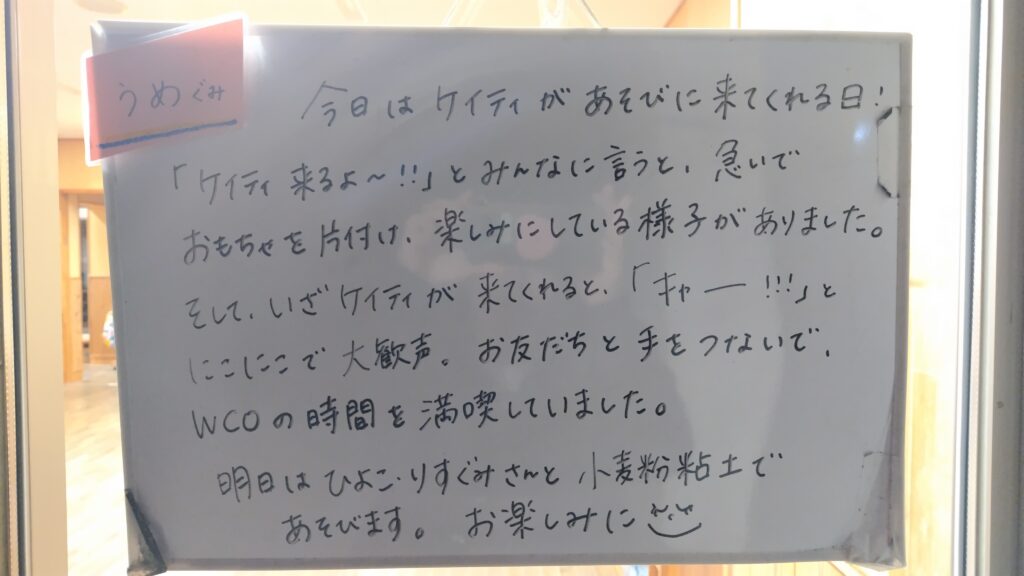 うめぐみ
今日はケイティがあそびに来てくれる日!
「ケイティ来るよ〜!!」とみんなに言うと、急いで
おもちゃを片付け、楽しみにしている様子がありました。
そして、いざケイティが来てくれると、「キャー!!!」と
にこにこで大歓声。お友だちと手をつないで、
WCOの時間を満喫していました。
明日はひよこ・りすぐみさんと小麦粉粘土で
あそびます。お楽しみに